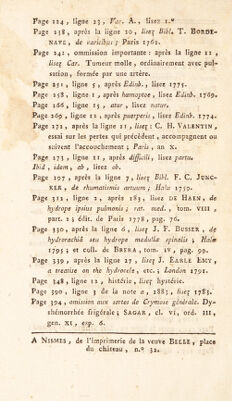 Page 224, ligne 23, Var. A., lisez 1.°
Page 238, après la ligne 20, lisez Bibl. T. BORDE-
NAVE, de varicibus; Paris 1762.
Page 242, ommission importante : après la ligne 11,
lisez Car. Tumeur molle, ordinairement avec pul-
sation, formée par une artère.
Page 251, ligne 5, après Edinb., lisez 1775.
Page 258, ligne 1, après hæmoptoe, lisez Edinb. 1769.
Page 266, ligne 15, atur, lisez natur.
Page 269, ligne 12, après puerperis, lisez Edinb. 1774.
Page 272, après la ligne 21, lisez : C. H. VALENTIN,
essai sur les pertes qui précèdent, accompagnent ou
suivent l'accouchement; Paris, an X.
Page 273, ligne 11, après difficili, lisez partu.
Ibid, idem, ab, lisez ob.
Page 297, après la ligne 7, lisez Bibl. F. C. JUNC-
KER, de rhumatismis artuum; Halæ 1759.
Page 312, ligne 2, après 183, lisez DE HAEN, de
hydrope ipsius pulmonis; rat. med., tom. VIII,
part. 2; édit. de Paris 1778, pag. 76.
Page 330, après la ligne 6, lisez J. F. BUSIER, de
hydrorachiâ seu hydrope medullæ spinalis; Halæ
1795; et coll. de BRERA, tom. IV, pag. 99.
Page 339, après la ligne 27, lisez J. EARLE EMY,
a treatise on the hydrocele, etc.; London 1791.
Page 348, ligne 12, histérie, lisez hystérie.
Page 390, ligne 3 de la note a, 1883, lisez 1783.
Page 394, omission aux sortes de Crymose générale. Dy-
shémorrhée frigérale; SAGAR, cl. VI, ord. III,
gen. XI, esp. 6.
A NISMES, de l'Imprimerie de la veuve BELLE, place
du château, n.° 32.